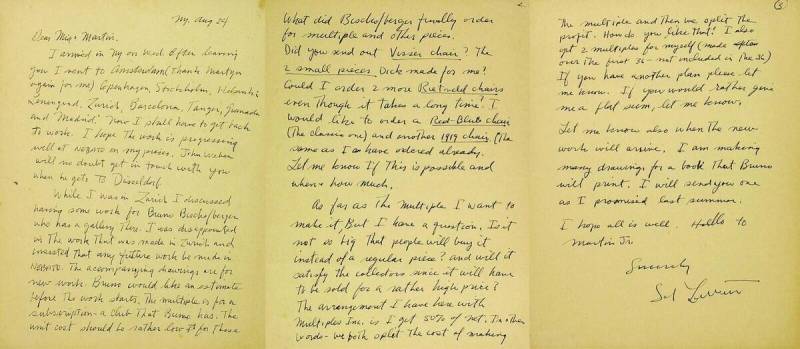 NY. Aug 24
Dear Mig & Martin.
I arrived in NY on Wed. After leaving
you I went to Amsterdam (thank Martyn
again for me) Copenhagen, Stockholm, Helsinki,
Leningrad, Zurich, Barcelona, Tanger, Granada
and Madrid. Now I shall have to get back
to work. I hope the work is progressing
well at NEBATO on my pieces. John Weber
will no doubt get in touch with you
when he gets to Düsseldorf.
While I was in Zurich I discussed
having some work for Bruno Bischofberger
who has a gallery there. I was disappointed
in the work that was made in Zurich and
insisted that any future work be made in
NEBATO. The accompanying drawings are for
new work. Bruno would like an estimate
before the work starts. The multiple is for a
subscription - a club that Bruno has. The
unit cost should be rather low for these
2.
What did Bischofberger finally order
for multiple and other pieces.
Did you send out Visser chair? The
2 small pieces Dick made for me?
Could I order 2 more Rietveld chairs
even though it takes a long time? I
would like to order a Red-Blue chair
(The classic one) and another 1919 chair. (The
same as I have ordered already.
Let me know if this is possible and
when & how much.
As far as the multiple I want to
make it, But I have a question. Is it
not so big that people will buy it
instead of a regular piece? and will it
satisfy the collectors since it will have
to be sold for a rather high price?
The arrangement I have here with
Multiples Inc. is I get 50% of net. In other
words - we both split the cost of making
3
the multiple and then we split the
profit. How do you like that? I also
get 2 multiples for myself (made
over the first 36 - not included in the 36)
If you have another plan please let
me know. If you would rather give
me a flat sum, let me know.
Let me know also when the new
work will arrive. I am making
many drawings for a book that Bruno
will print. I will send you one
as I promised last summer.
I hope all is well. Hello to
Martin Jr.
Sincerely
Sol LeWitt